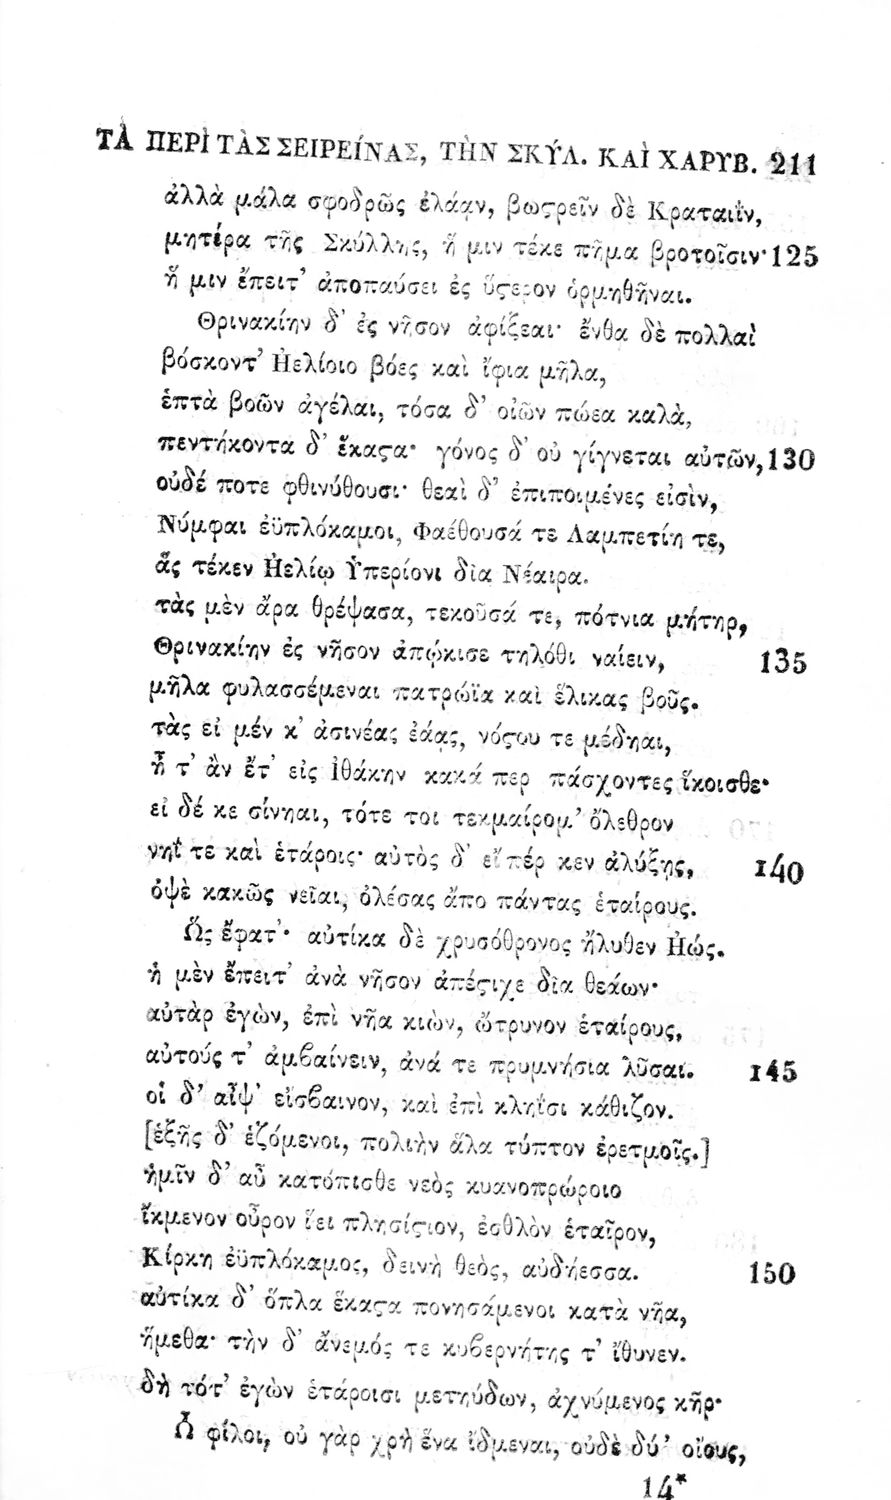 ΤᾺ ΠΕΡῚ ΤᾺΣ ΣΕΙΡΕΊΝΑΣ, ΤῊΝ ΣΚΎΛ. ΚΑῚ ΧΑΡΥΒ. 211
ἀλλὰ μάλα σφοδρῶς ἐλάαν, βωϛρεῖν δὲ Κραταιῒν,
μητέρα τῆς Σκύλλης, ἥ μιν τέκε πῆμα βροτοῖσιν· 125
ἥ μιν ἔπειτ' ἀποπαύσει ἐς ὕϛερον ὁρμηθῆναι.
Θρινακίην δ' ἐς νῆσον ἀφίξεαι· ἔνθα δὲ πολλαὶ
βόσκοντ' Ἠελίοιο βόες καὶ ἴφια μῆλα,
ἑπτὰ βοῶν ἀγέλαι, τόσα δ' οἰῶν πώεα καλὰ,
πεντήκοντα δ' ἕκαϛα· γόνος δ' οὐ γίγνεται αὐτῶν, 130
οὐδέ ποτε φθινύθουσι· θεαὶ δ' ἐπιποιμένες εἰσὶν,
Νύμφαι ἐϋπλόκαμοι, Φαέθουσά τε Λαμπετίη τε,
ἃς τέκεν Ἠελίῳ Ὑπερίονι δῖα Νέαιρα.
τὰς μὲν ἄρα θρέψασα, τεκοῦσά τε, πότνια μήτηρ,
Θρινακίην ἐς νῆσον ἀπῴκισε τηλόθι ναίειν, 135
μῆλα φυλασσέμεναι πατρώϊα καὶ ἕλικας βοῦς.
τὰς εἰ μέν κ' ἀσινέας ἐάᾳς, νόϛου τε μέδηαι,
ἦ τ' ἂν ἔτ' εἰς Ἰθάκην κακά περ πάσχοντες ἵκοισθε·
εἰ δέ κε σίνηαι, τότε τοι τεκμαίρομ' ὄλεθρον
νηΐ τε καὶ ἑτάροις· αὐτὸς δ' εἴπέρ κεν ἀλύξῃς, 140
ὀψὲ κακῶς νεῖαι, ὀλέσας ἄπο πάντας ἑταίρους.
Ὣς ἔφατ'· αὐτίκα δὲ χρυσόθρονος ἤλυθεν Ἠώς.
ἡ μὲν ἔπειτ' ἀνὰ νῆσον ἀπέϛιχε δῖα θεάων·
αὐτὰρ ἐγὼν, ἐπὶ νῆα κιὼν, ὤτρυνον ἑταίρους,
αὐτούς τ' ἀμϐαίνειν, ἀνά τε πρυμνήσια λῦσαι. 145
οἱ δ' αἶψ' εἴσϐαινον, καὶ ἐπὶ κληῗσι κάθιζον.
[ἑξῆς δ' ἑζόμενοι, πολιὴν ἅλα τύπτον ἐρετμοῖς.]
ἡμῖν δ' αὖ κατόπισθε νεὸς κυανοπρώροιο
ἴκμενον οὖρον ἵει πλησίϛιον, ἐσθλὸν ἑταῖρον,
Κίρκη ἐϋπλόκαμος, δεινὴ θεὸς, αὐδήεσσα. 150
αὐτίκα δ' ὅπλα ἕκαϛα πονησάμενοι κατὰ νῆα,
ἥμεθα· τὴν δ' ἄνεμός τε κυϐερνήτης τ' ἴθυνεν.
δὴ τότ' ἐγὼν ἑτάροισι μετηύδων, ἀχνύμενος κῆρ·
Ὦ φίλοι, οὐ γὰρ χρὴ ἕνα ἴδμεναι, οὐδὲ δύ' οἴους,
14*